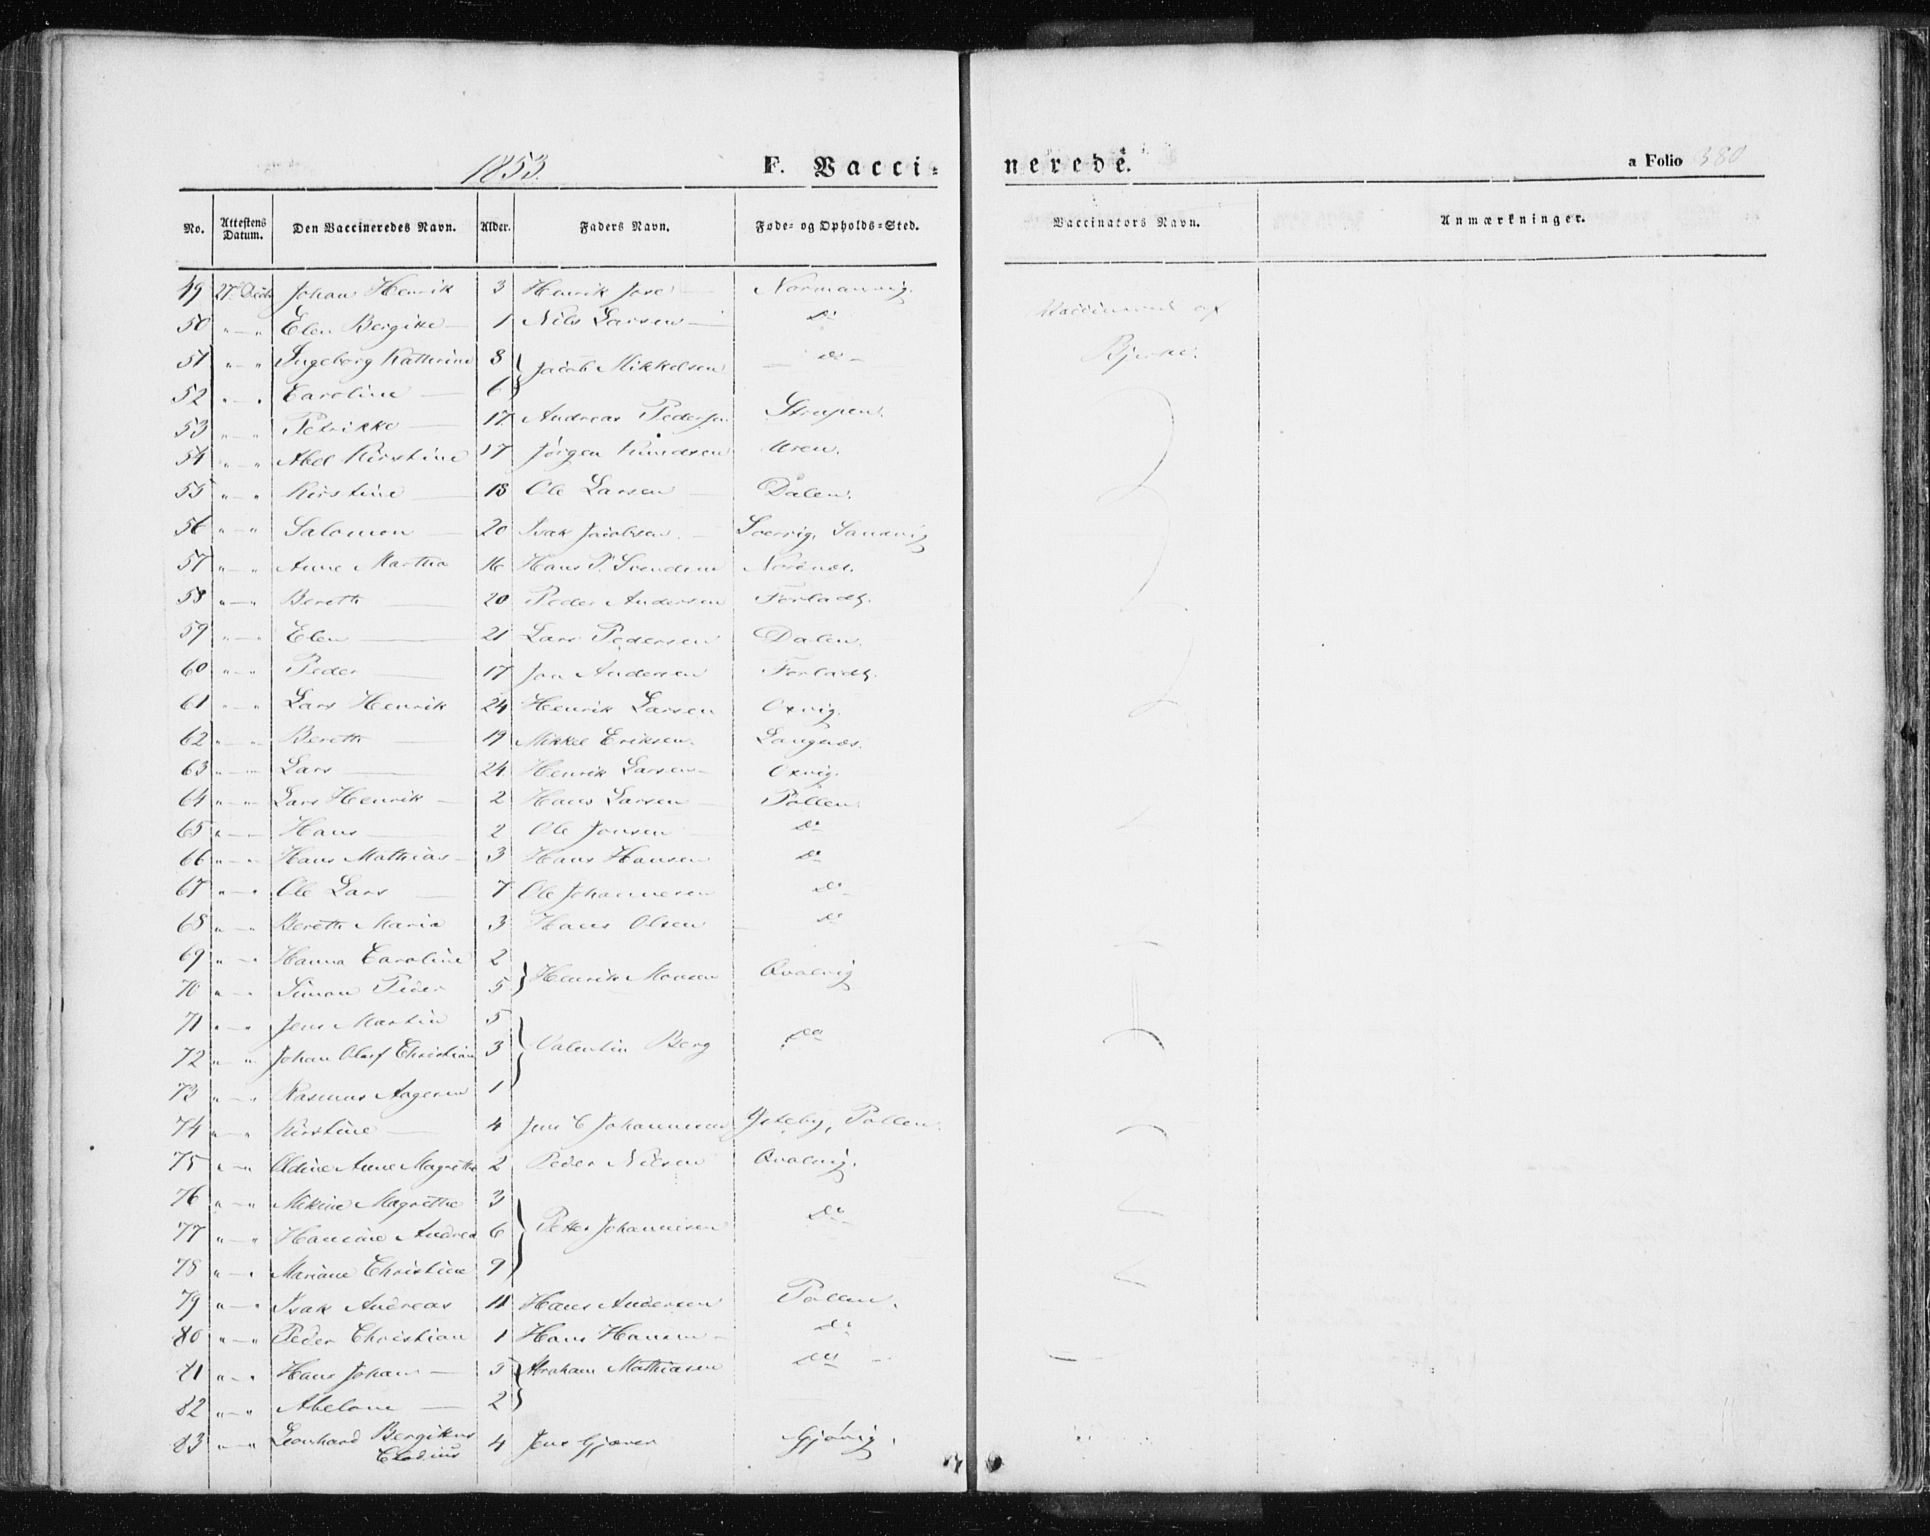 1853. F. Vacci= nerede. a Folio 380
No. Attestens Datum. Den Vaccineredes Navn. Alder. Faders Navn. Føde- og Opholds-Sted. Vaccinators Navn. Anmærkninger.
49 27 Johan Henrik 3 Henrik Normanvig.
50 " — " Elen Bergitte 1 Nils Larsen Do Vaccinered af
51 " — " Ingeborg Kathrine 8 } Jacob Mikkelsen Do Bjerke.
52 " — " Caroline 6 }
53 " — " Petrikke 17 Andreas Pedersen Strupen.
54 " — " Abel Kirstine 17 Jørgen Knudsen Uren.
55 " — " Kirstine 18 Ole Larsen Dalen.
56 " — " Salomon 20 Isak Jacobsen Sandvig
57 " — " Anne Martha 16 Hans P. Svendsen
58 " — " Bereth 20 Peder Andersen
59 " — " Elen 21 Lars Pedersen Dalen.
60 " — " Peder 17 Jon Andersen
61 " — " Lars Henrik 24 Henrik Larsen Oxvig.
62 " — " Bereth 19 Mikkel Eriksen. Langnæs.
63 " — " Lars 24 Henrik Larsen Oxvig.
64 " — " Lars Henrik 2 Hans Larsen Pollen.
65 " — " Hans 2 Ole Jonsen Do
66 " — " Hans Mathias 3 Hans Hansen Do
67 " — " Ole Lars 7 Ole Johannesen Do
68 " — " Bereth Maria 3 Hans Olsen Do
69 " — " Hanna Caroline 2 } Henrik Monsen Qvalvig
70 " — " Simon Peder 5 }
71 " — " Jens Martin 5 }
72 " — " Johan Oluf Christian 3 } Valentin Berg Do
73 " — " Rasmus Aagesen 1 }
74 " — " Kirstine 4 Jens C Johannesen Jøteby, Pollen.
75 " — " Oldine Anne Magrethe 2 Peder Nilsen Qvalvig.
76 " — " Mikine Magrethe 3 }
77 " — " Hansine Andrea 6 } Petter Johannesen Do
78 " — " Mariane Christine 9 }
79 " — " Isak Andreas 11 Hans Andersen Pollen.
80 " — " Peder Christian 1 Hans Hansen Do
81 " — " Hans Johan 5 } Abraham Mathiasen Do
82 " — " Abelone 2 }
83 " — " Leonhard Bergithus 4 Jens Gjæver Gjøvig.
Clodius